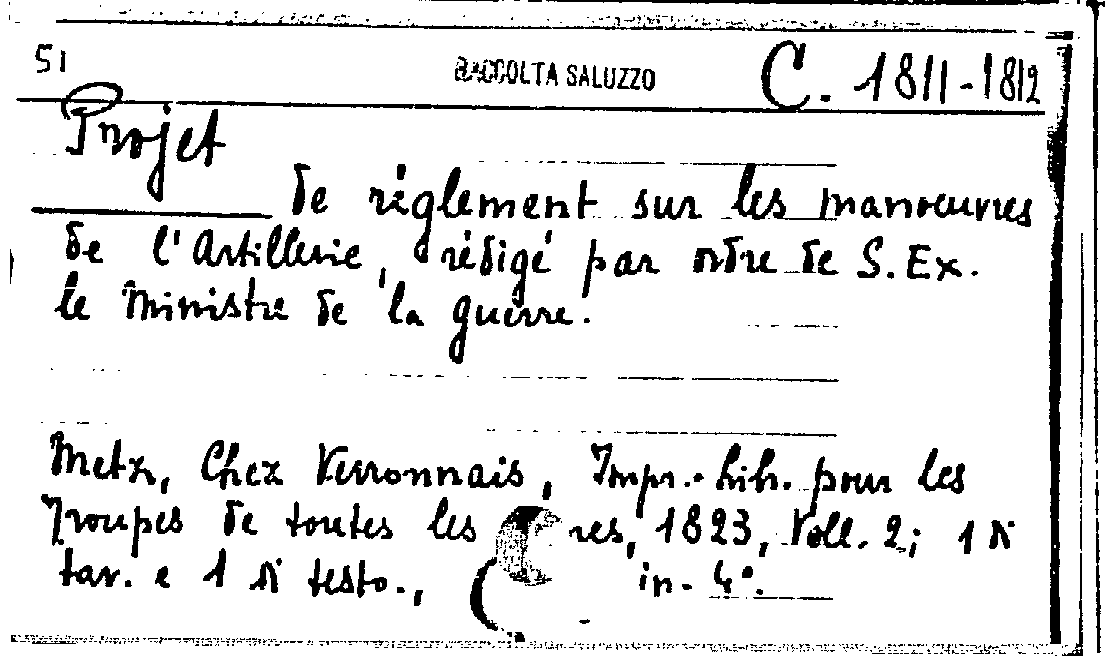 51 RACCOLTA SALUZZO C. 1811-1812
Projet
de règlement sur les manoeuvres
de l'Artillerie, rédigé par ordre de S. Ex.
le Ministre de la guerre.
Metz, Chez Verronnais, Impr.-Lib. pour les
Troupes de toutes les res, 1823, Voll. 2; 1 di
tav. e 1 di testo., in-4°.